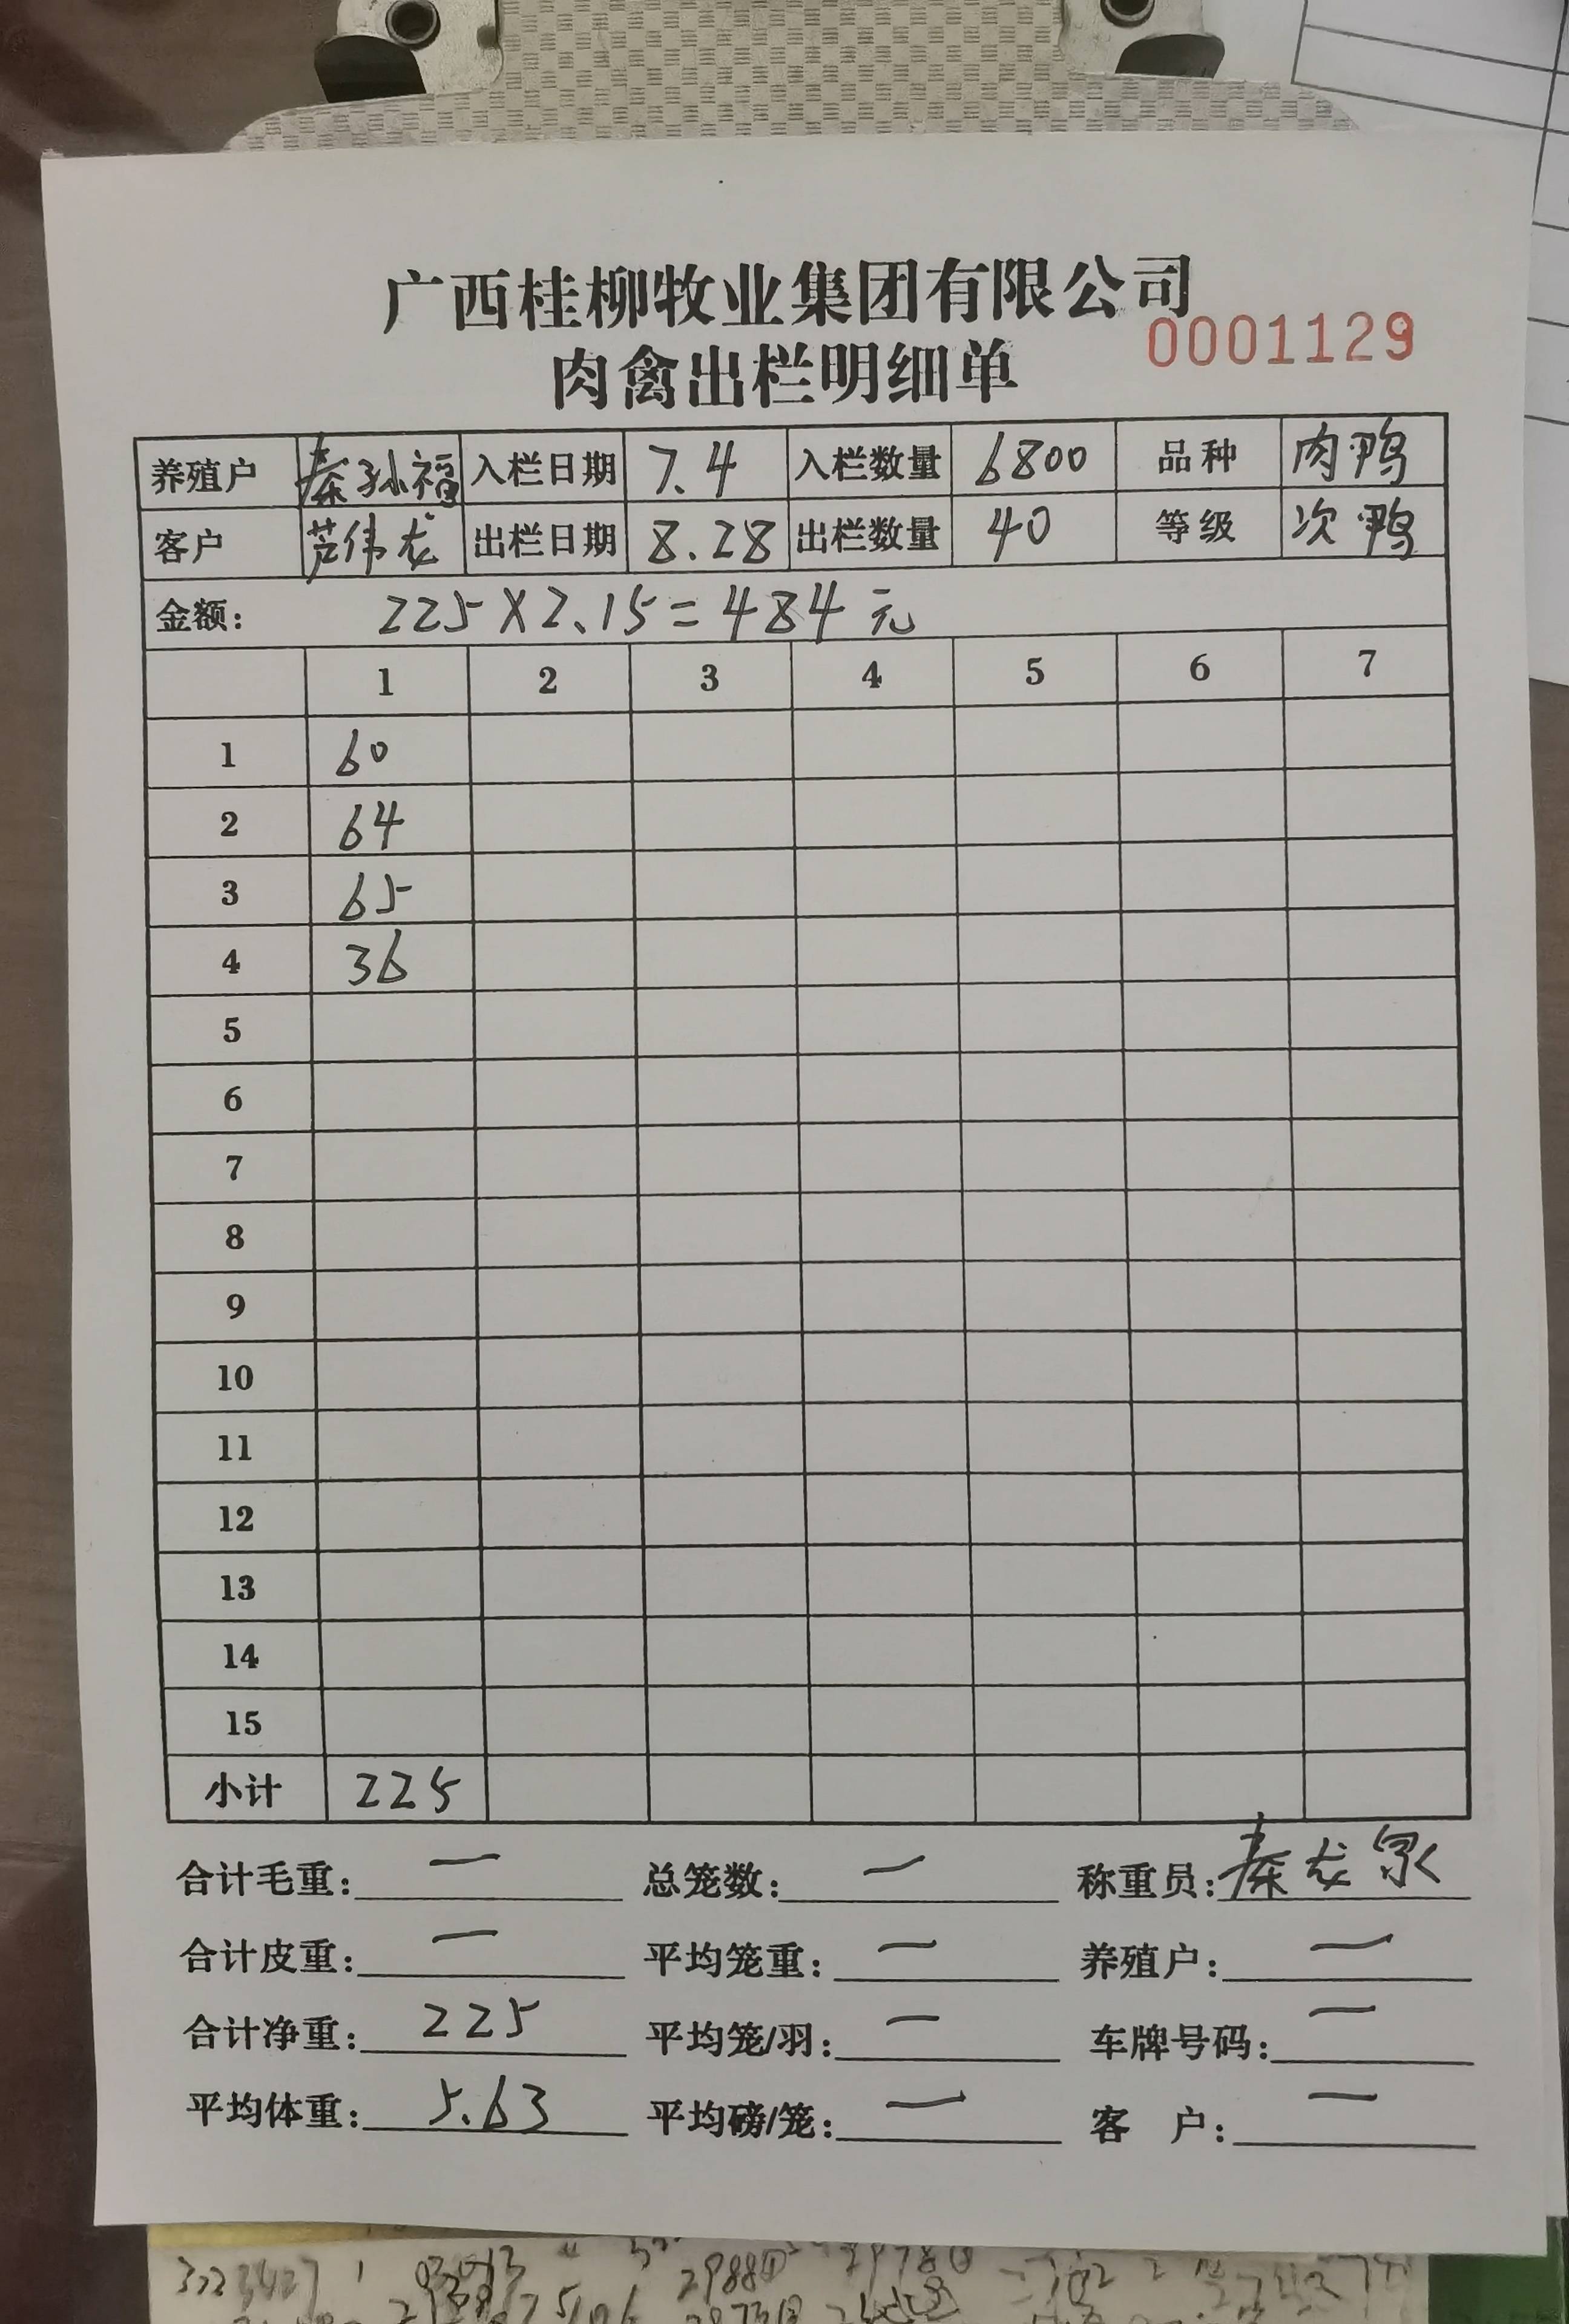 广西桂柳牧业集团有限公司
0001129
肉禽出栏明细单
养殖户 秦孙福 入栏日期 7.4 入栏数量 6800 品种 肉鸭
客户 芦伟龙 出栏日期 8.28 出栏数量 40 等级 次鸭
金额: 225×2.15=484元
1 2 3 4 5 6 7
1 60
2 64
3 65
4 36
5
6
7
8
9
10
11
12
13
14
15
小计 225
合计毛重: — 总笼数: — 称重员: 秦龙泉
合计皮重: — 平均笼重: — 养殖户: —
合计净重: 225 平均笼/羽: — 车牌号码: —
平均体重: 5.63 平均磅/笼: — 客 户: —